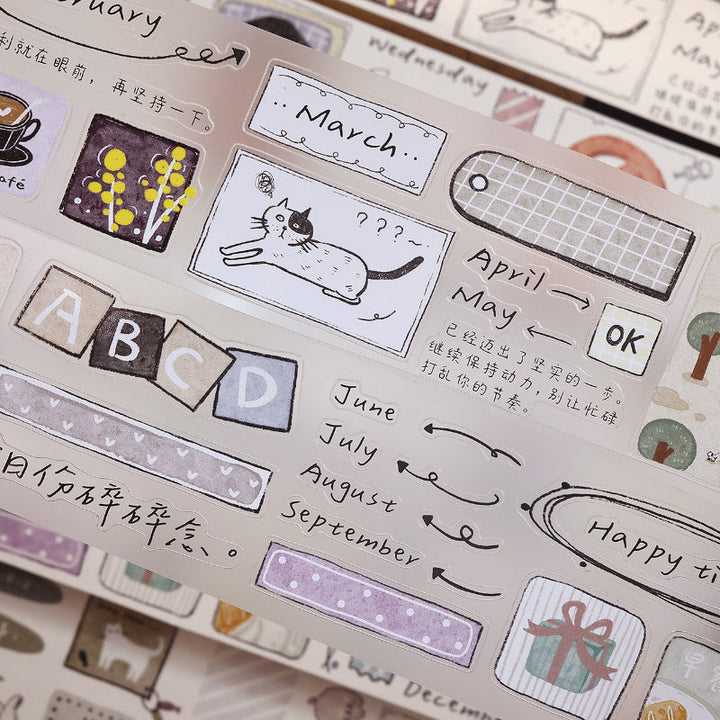 ruary
利就在眼前，再坚持一下。
Wednesday
Ap
Ma
afé
··March··
? ? ? ~
April
May
OK
已经迈出了坚实的一步。
继续保持动力，别让忙碌
打乱你的节奏。
A B C D
June
July
August
September
Happy ti
月份碎碎念。
Decembe